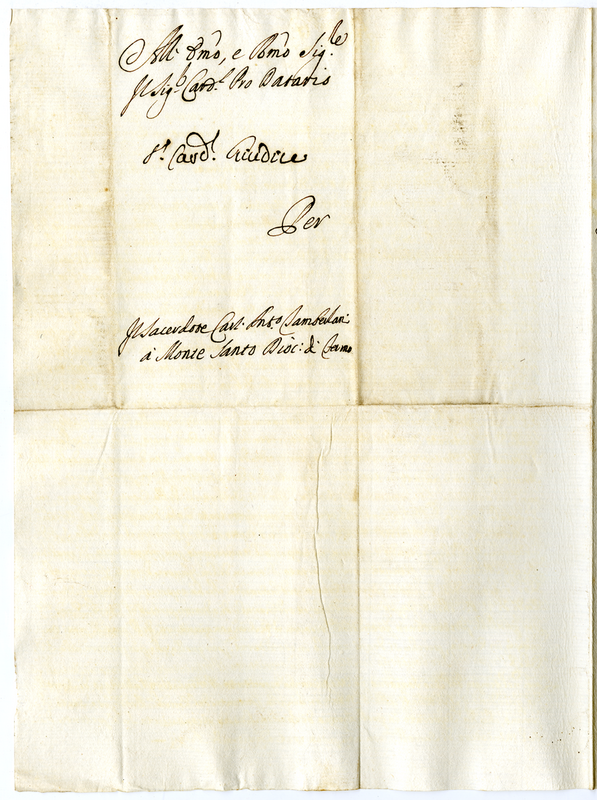 All' Emo, e Rmo Sig.re
Il Sig.r Card.l Pro Datario
S.r Card.l Giudice
Per
Il Sacerdote Carl' Ant.o Zamberlani
à Monte Santo Dioc: di Fermo